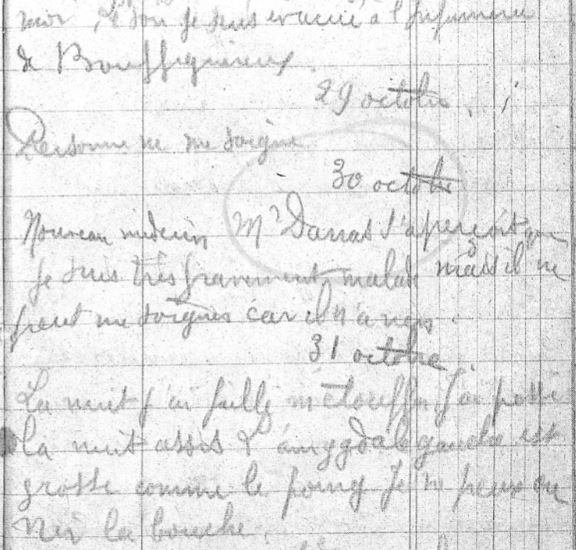 moi, le soir je suis évacué à l'infirmerie
de Bouffignereux
29 octobre.
Personne ne me soigne
30 octobre
Nouveau médecin Mr Darras s'aperçoit que
je suis très gravement malade mais il ne
peut me soigner car il n'a rien.
31 octobre
La nuit j'ai failli m'étouffer j'ai passé
la nuit assis L'amygdale gauche est
grosse comme le poing Je ne peux ou
vrir la bouche.